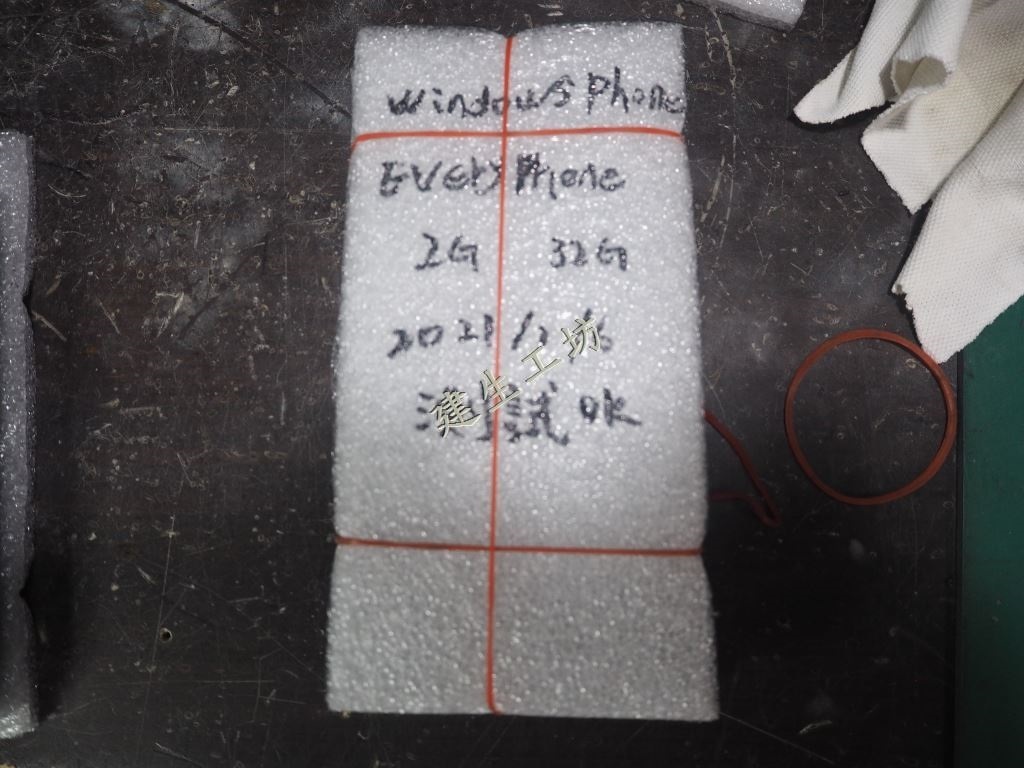 Windows Phone
EveryPhone
2G 32G
2021/
測試 OK
建生工坊